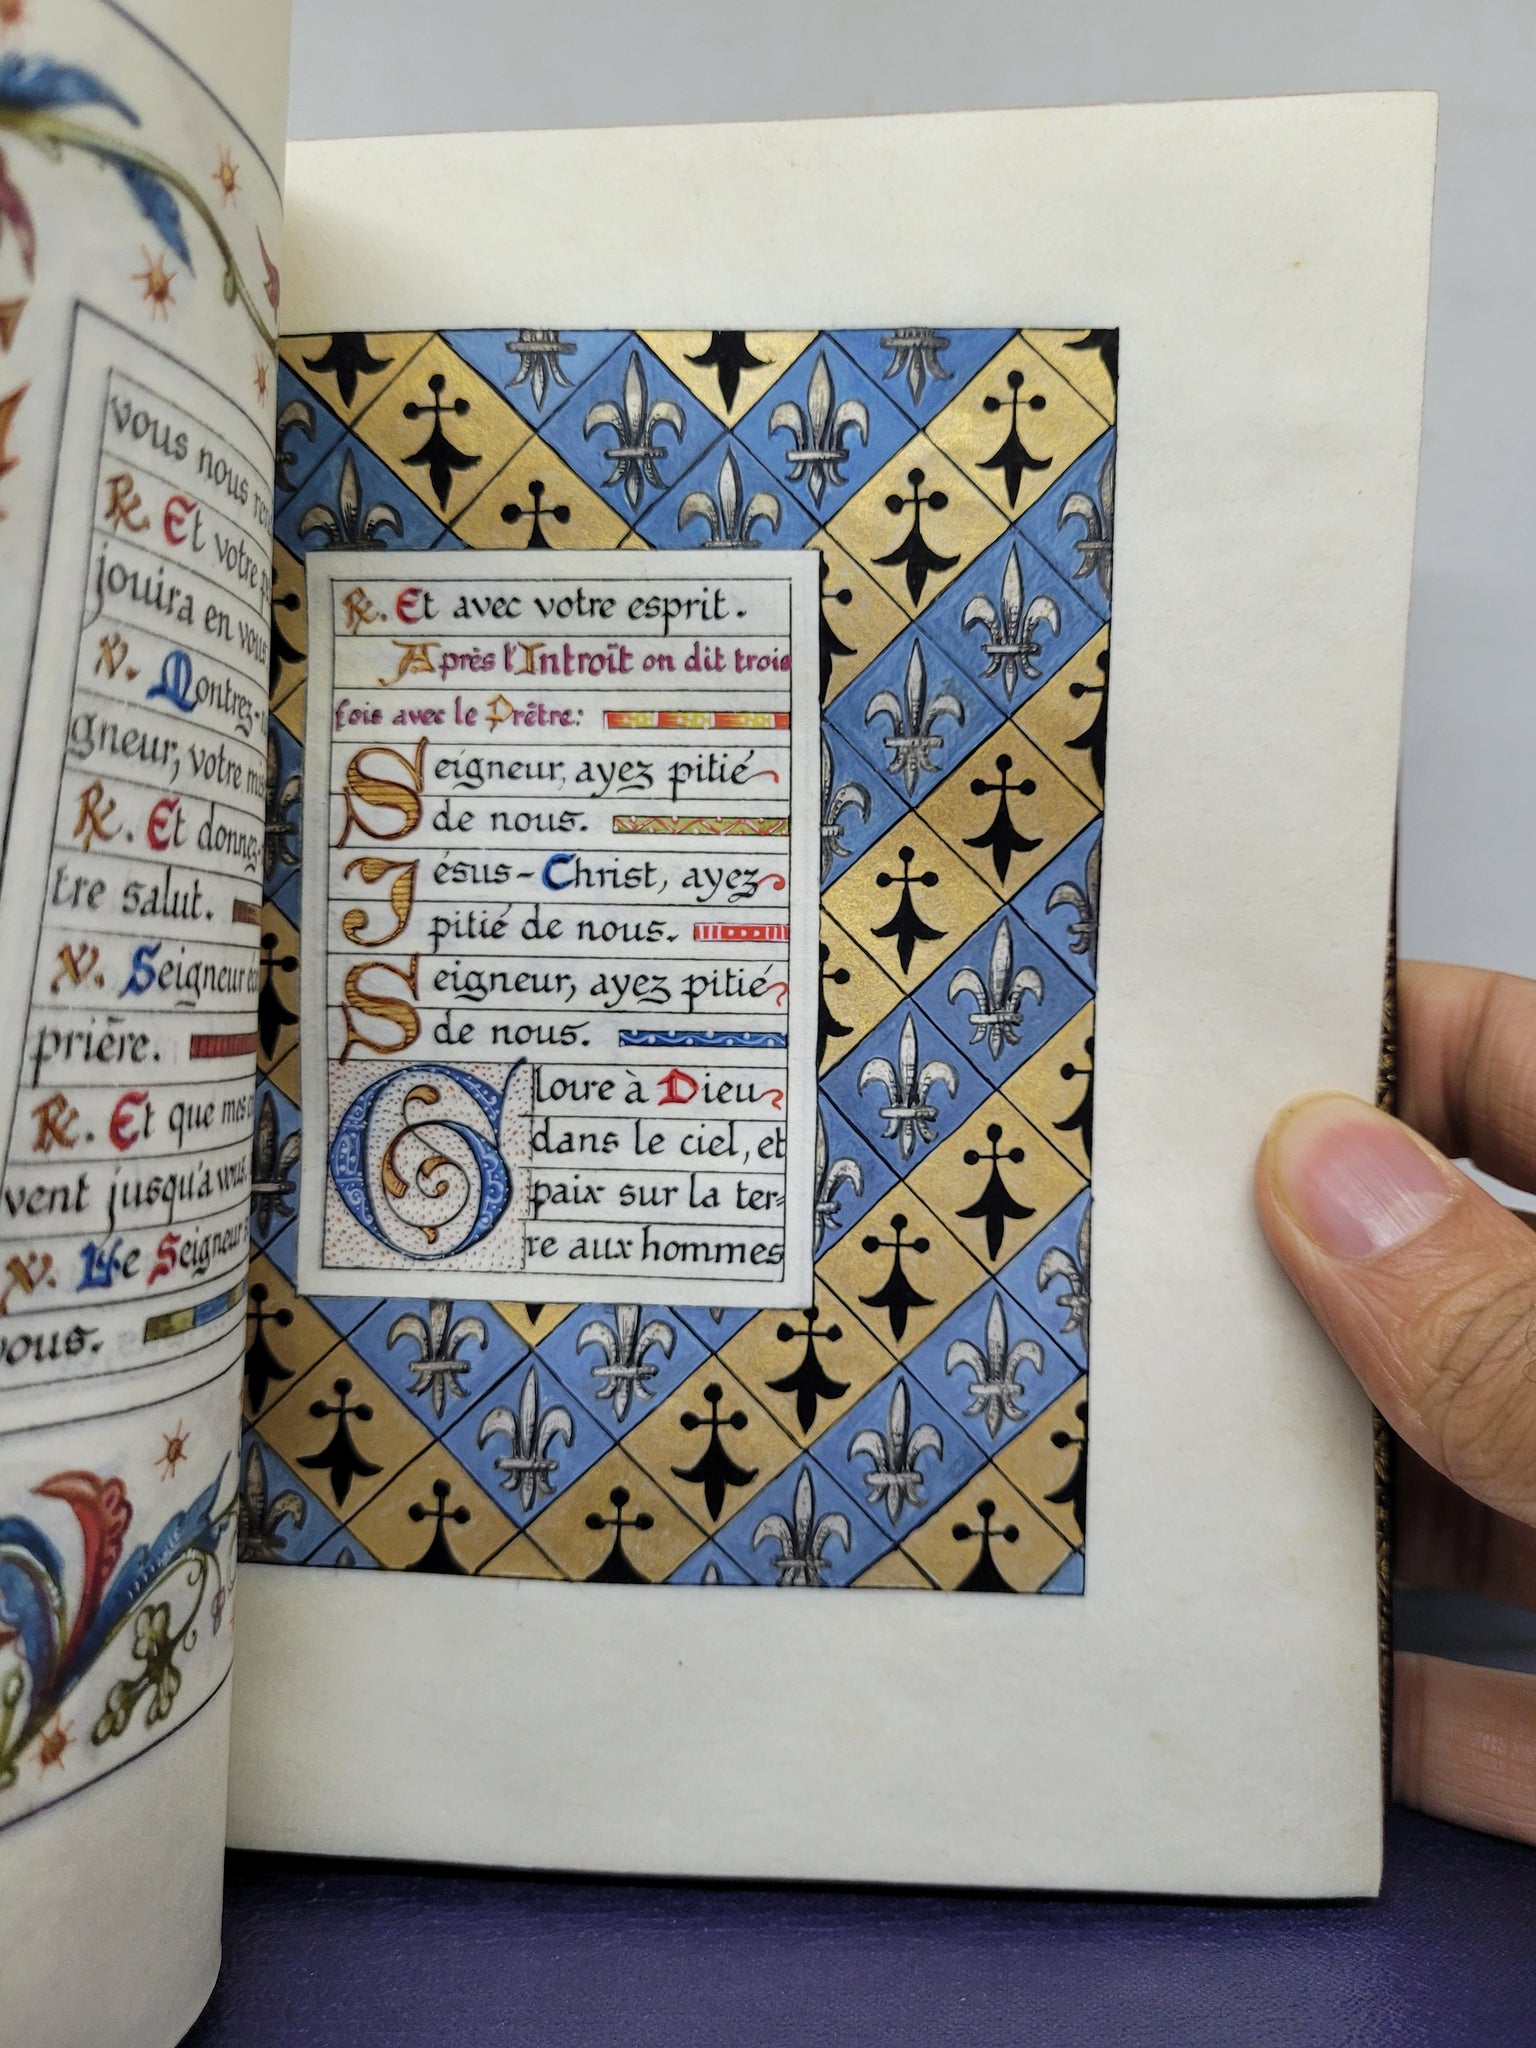 vous nous
℟. Et votre
jouira en vous
℣. Montrez-
gneur, votre
℟. Et donnez-
tre salut.
℣. Seigneur
prière.
℟. Et que mes
vent jusqu'à vous.
℣. Le Seigneur
vous.
℟. Et avec votre esprit.
Après l'Introït on dit trois
fois avec le Prêtre:
Seigneur, ayez pitié
de nous.
Jésus-Christ, ayez
pitié de nous.
Seigneur, ayez pitié
de nous.
Gloire à Dieu
dans le ciel, et
paix sur la ter=
re aux hommes